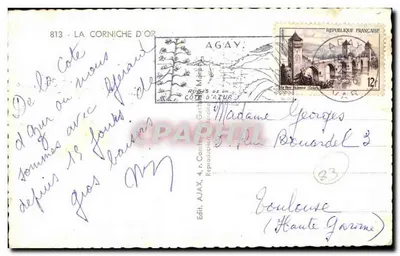 813 - LA CORNICHE D'OR
De la Côte
d'Azur où nous
sommes avec Gérard
depuis 15 jours, de
gros baisers
AGAY
CÔTE D'AZUR
REPUBLIQUE FRANÇAISE
12F
VAR
Edit. AJAX, 4, r.
Madame Georges
3, rue Bourdel 3
23
Toulouse
(Haute Garonne)